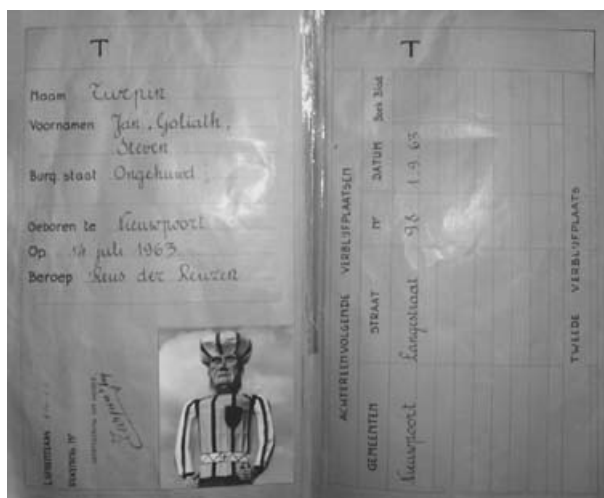 T
Naam Turpin
Voornamen Jan, Goliath,
Steven
Burg. staat Ongehuwd
Geboren te Nieuwpoort
Op 14 juli 1963
Beroep Reus der Reuzen
T
ACHTEREENVOLGENDE VERBLIJFPLAATSEN
GEMEENTEN STRAAT Nr DATUM Boek Blad
Nieuwpoort Langestraat 98 1.9.63
TWEEDE VERBLIJFPLAATS